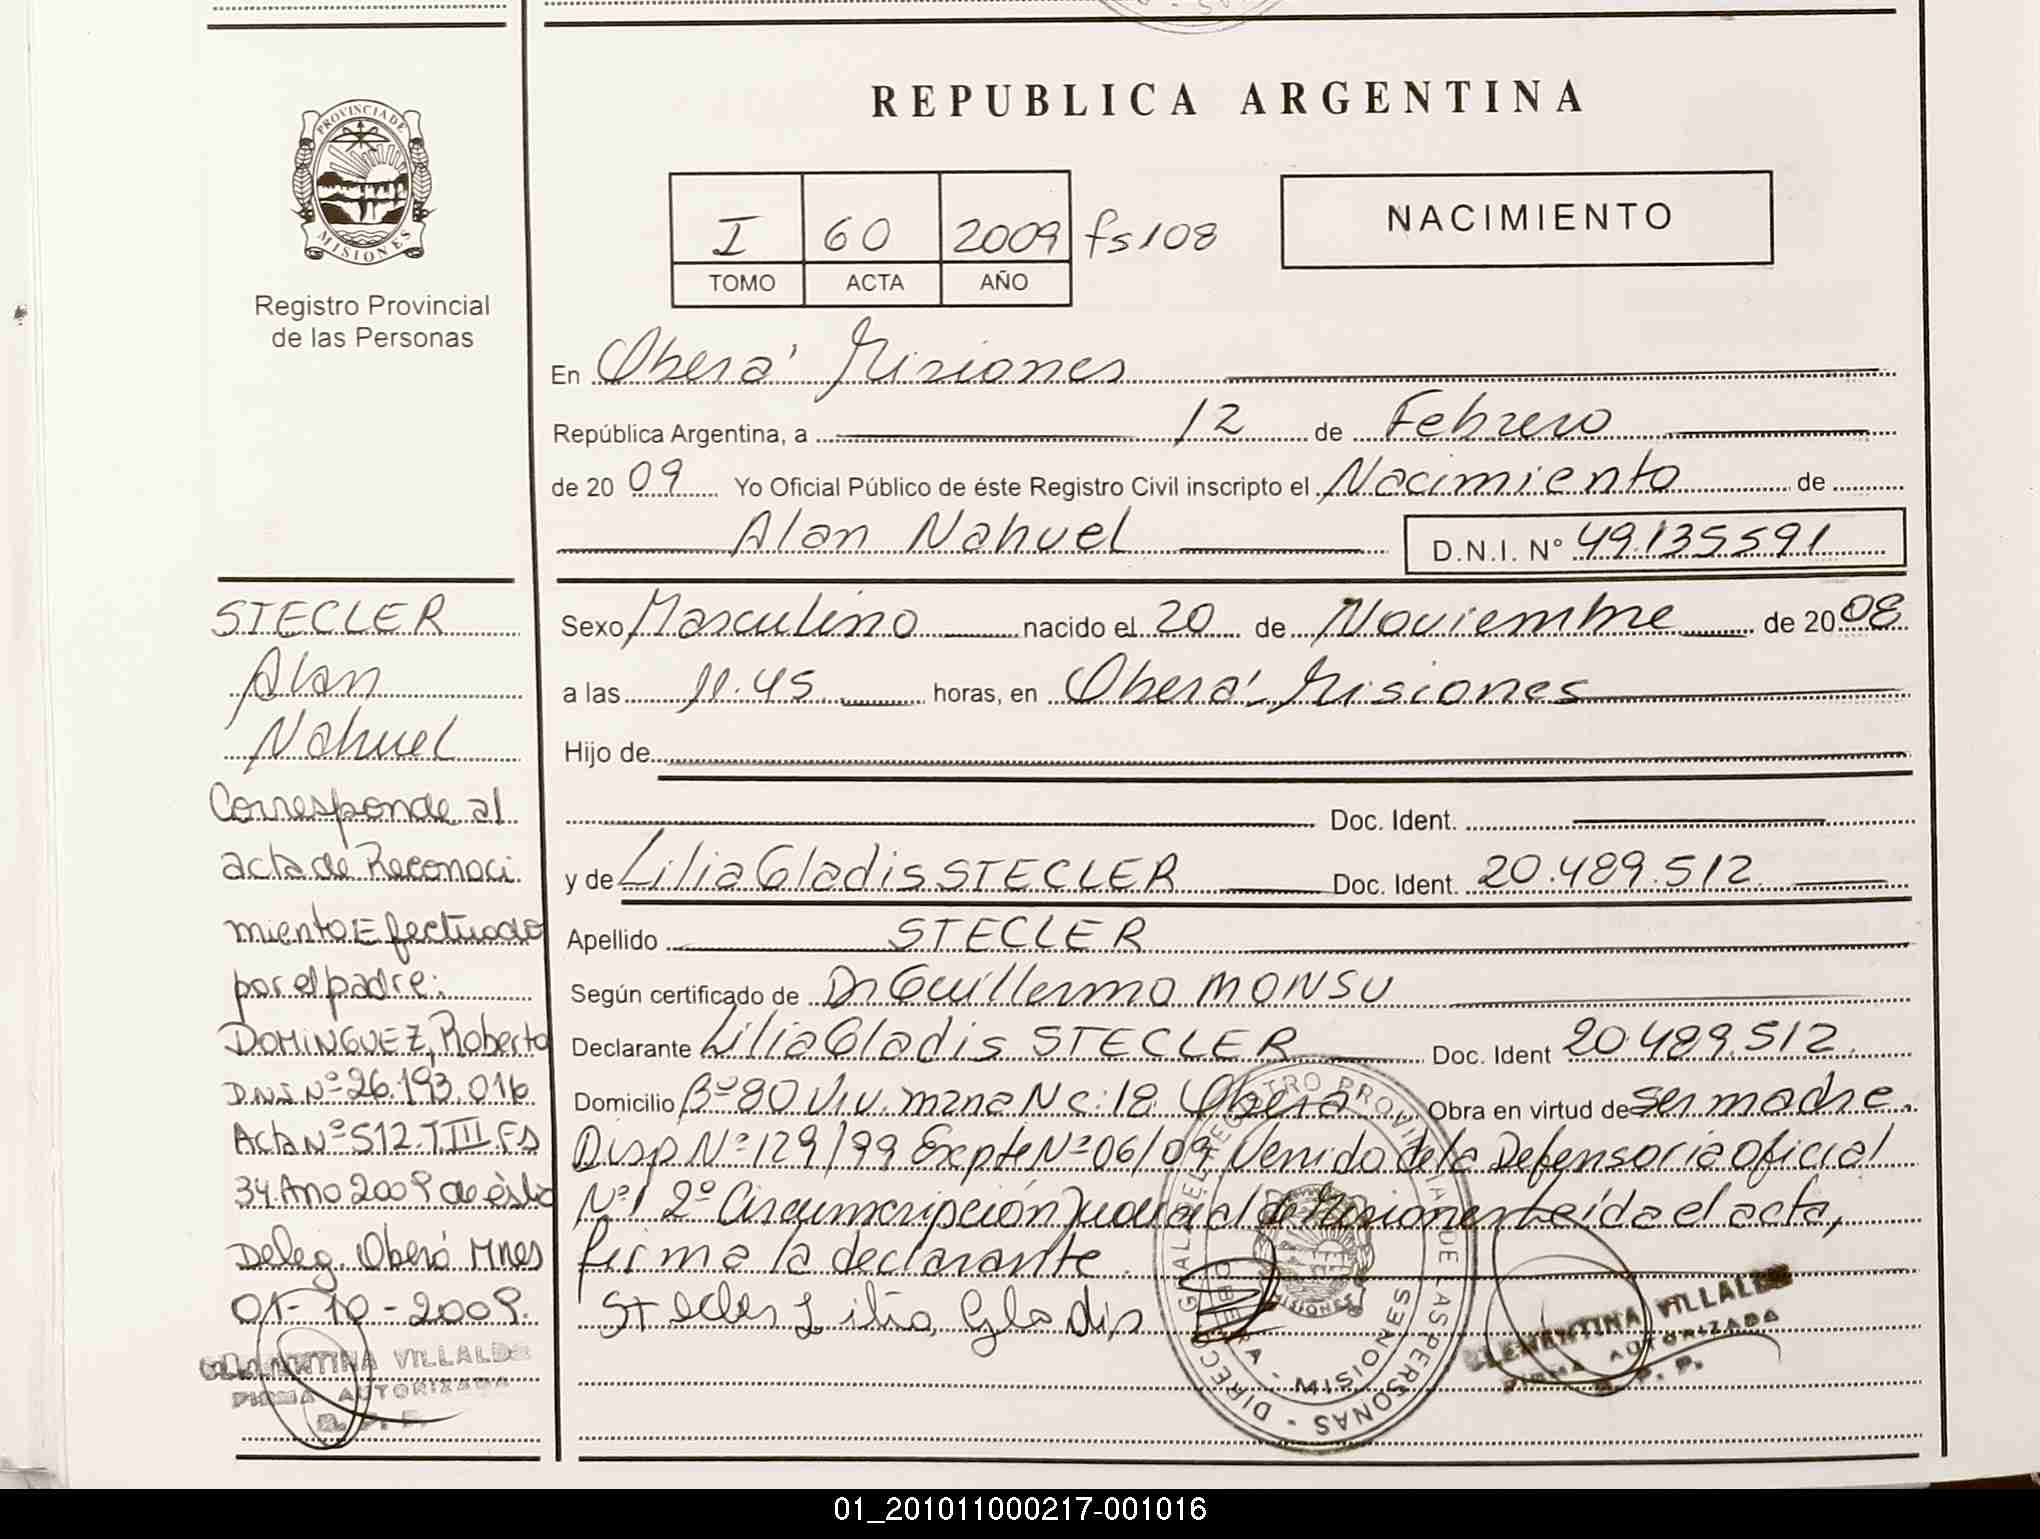 REPUBLICA ARGENTINA
PROVINCIA DE MISIONES
Registro Provincial
de las Personas
I 60 2009 fs 108
TOMO ACTA AÑO
NACIMIENTO
En Oberá Misiones
República Argentina, a 12 de Febrero
de 20 09 Yo Oficial Público de éste Registro Civil inscripto el Nacimiento de
Alan Nahuel D.N.I. N° 49.135591
STECLER
Alan
Nahuel
Corresponde al
acta de Reconoci
miento Efectuado
por el padre:
DOMINGUEZ, Roberto
DNI Nº 26.193.016
Acta Nº 512. T.III. Fs
34. Año 2009 de ésta
Deleg. Oberá Mnes
01-10-2009.
CLEMENTINA VILLALBA
FIRMA AUTORIZADA
R. P. P.
Sexo Masculino nacido el 20 de Noviembre de 20 08
a las 11.45 horas, en Oberá. Misiones
Hijo de
Doc. Ident.
y de Lilia Gladis STECLER Doc. Ident. 20.489.512
Apellido STECLER
Según certificado de Dr Guillermo MONSU
Declarante Lilia Gladis STECLER Doc. Ident 20.489.512.
Domicilio Bº 80 Viv. mzna N c: 18 Oberá Obra en virtud de ser madre.
Disp Nº 129/99 Expte Nº 06/09, Venido de la Defensoria oficial
Nº1 2º Circunscripción Judicial de Misiones Leída el acta,
firma la declarante.
Stecler Lilia Gladis
DIRECC. GRAL DEL REGISTRO PROVINCIAL DE LAS PERSONAS
OBERA - MISIONES
MISIONES
CLEMENTINA VILLALBA
FIRMA AUTORIZADA
R. P. P.
01_201011000217-001016